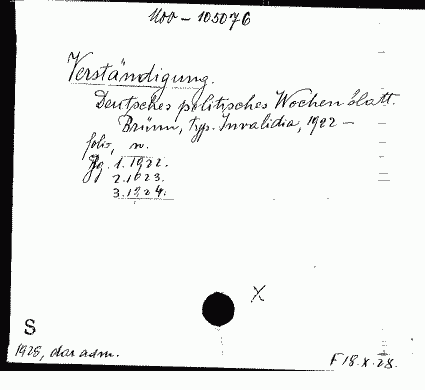 Mov - 105076
Verständigung.
Deutsches politisches Wochenblatt.
Brünn, typ. Invalidia, 1922 -
folio, n.
Jg. 1.1922.
2.1923.
3.1924.
X
S
1925, dar adm.
F 18.X.28.